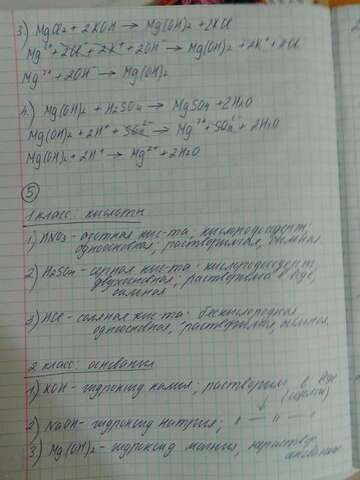 3) MgCl₂ + 2KOH → Mg(OH)₂ + 2KCl
Mg²⁺ + 2Cl⁻ + 2K⁺ + 2OH⁻ → Mg(OH)₂ + 2K⁺ + 2Cl⁻
Mg²⁺ + 2OH⁻ → Mg(OH)₂
4) Mg(OH)₂ + H₂SO₄ → MgSO₄ + 2H₂O
Mg(OH)₂ + 2H⁺ + SO₄²⁻ → Mg²⁺ + SO₄²⁻ + 2H₂O
Mg(OH)₂ + 2H⁺ → Mg²⁺ + 2H₂O
5
1 класс: кислоты
1) HNO₃ - азотная кис-та, кислородсодерж,
одноосновная, растворимая, сильная.
2) H₂SO₄ - серная кис-та кислородсодерж,
двухосновная, растворима в воде,
сильная
3) HCl - соляная кис-та бескислородная
одноосновная, растворимая, сильная.
2 класс: основания
1) KOH - гидроксид калия, растворим в воде
(щёлочь)
2) NaOH - гидроксид натрия; " — " —
3) Mg(OH)₂ - гидроксид магния, нераствор.
основание